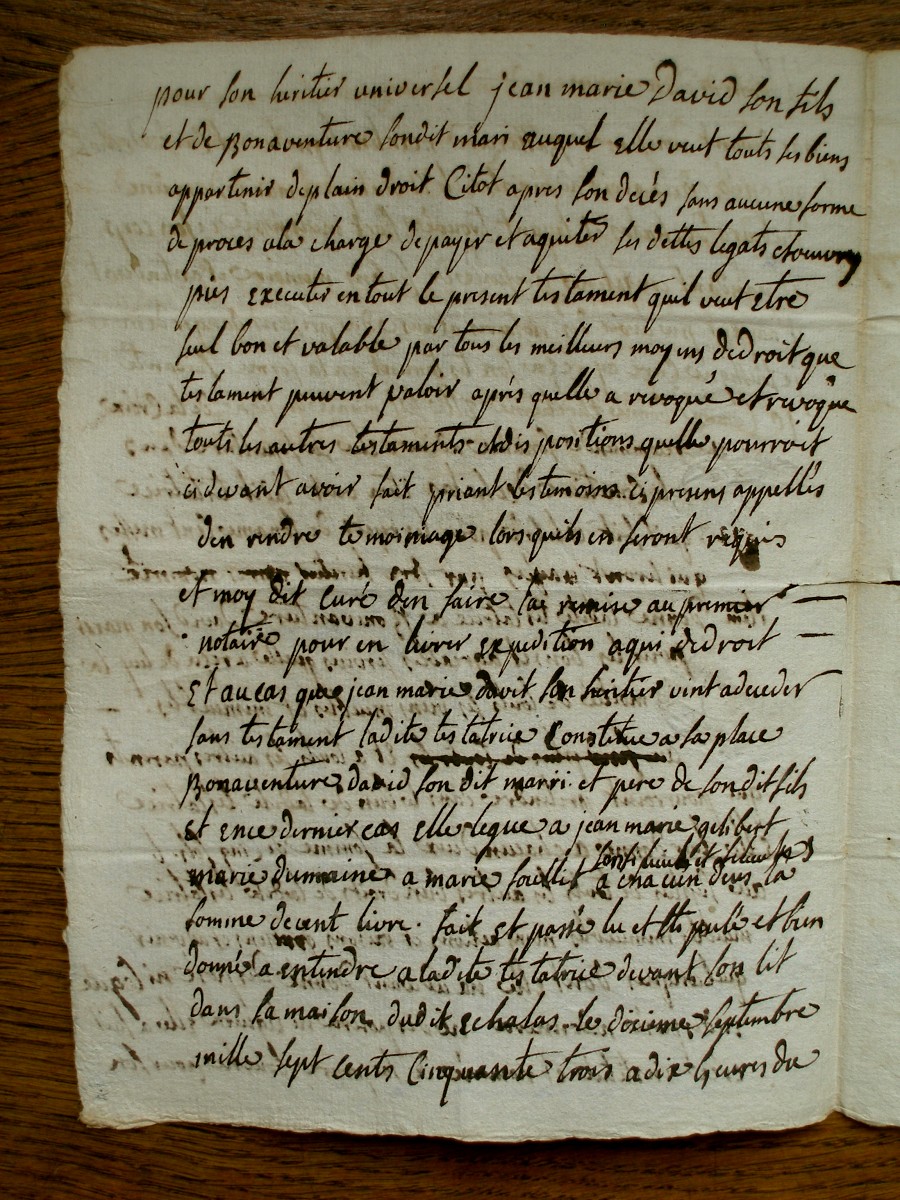 pour son heritier universel jean marie David son fils
et de Bonaventure sondit mari auquel elle veut touts ses biens
appartenir de plain droit Citot apres son decés sans aucune forme
de proces a la charge de payer et aquiter ses dettes legats et oeuvres
pies executer en tout le present testament quil veut etre
seul bon et valable par tous les meilleurs moyens de droit que
testament peuvent valoir aprés quelle a revoqué et revoque
touts les autres testaments et dispositions quelle pourroit
ci devant avoir fait priant les temoins ci presens appellés
den rendre temoinage lors quils en seront requis
et moy dit curé den faire la remise au premier
notaire pour en livrer expedition a qui de droit
Et au cas que jean marie davit son heritier vint a deceder
sans testament ladite testatrice Constitue a sa place
Bonaventure david son dit marri et pere de sondit fils
et en ce dernier cas elle legue a jean marie gilibert
marie dumaine a marie
a chacun deux la
somme de cent livre. fait et passé lu et stipulé et bien
donné a entendre a ladite testatrice devant son lit
dans sa maison dudit echalas le dixieme septembre
mille sept cents Cinquante trois a dix heures du